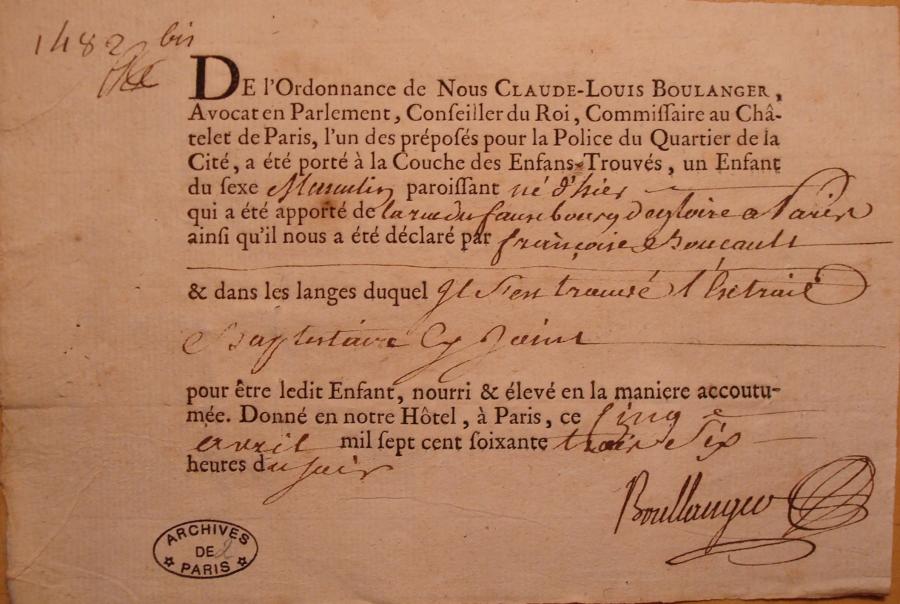 1482 bis
DE l'Ordonnance de Nous CLAUDE-LOUIS BOULANGER,
Avocat en Parlement, Conseiller du Roi, Commissaire au Châ-
telet de Paris, l'un des préposés pour la Police du Quartier de la
Cité, a été porté à la Couche des Enfans-Trouvés, un Enfant
du sexe Masculin paroissant né d'hier
qui a été apporté de la rue du fauxbourg de gloire a Paris
ainsi qu'il nous a été déclaré par françoise Boucault
& dans les langes duquel Il s'en trouvé l'Extrait
Baptistaire Cy Joint
pour être ledit Enfant, nourri & élevé en la maniere accoutu-
mée. Donné en notre Hôtel, à Paris, ce Cinq
avril mil sept cent soixante trois Six
heures du soir
Boullanger
ARCHIVES
DE
PARIS